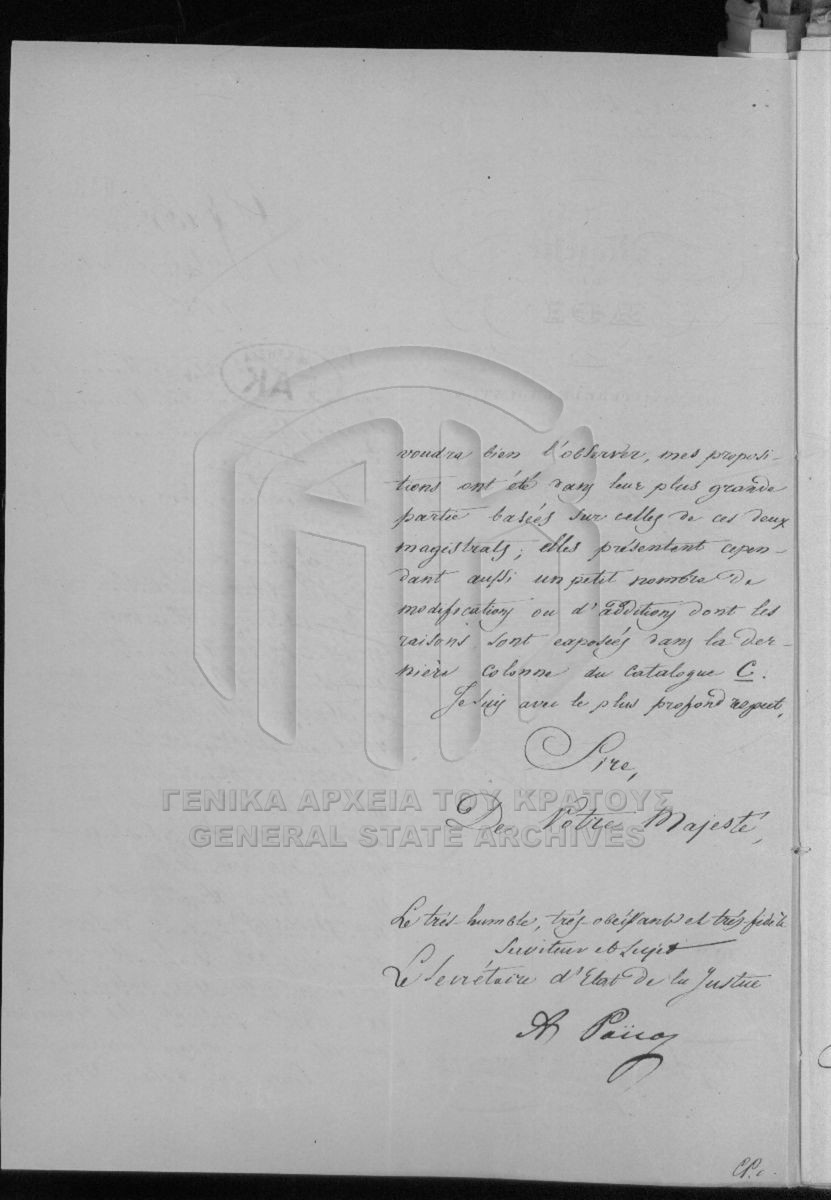 AK
voudra bien l'observer, mes proposi-
tions ont été dans leur plus grande
partie basées sur celles de ces deux
magistrats; elles présentent cepen-
dant aussi un petit nombre de
modifications ou d'additions dont les
raisons sont exposées dans la der-
nière colonne du catalogue C.
Je suis avec le plus profond respect,
Sire,
De Votre Majesté,
ΓΕΝΙΚΑ ΑΡΧΕΙΑ ΤΟΥ ΚΡΑΤΟΥΣ
GENERAL STATE ARCHIVES
Le très-humble, très-obéissant et très-fidèle
serviteur et sujet
Le Secrétaire d'Etat de la Justice
A Païcos